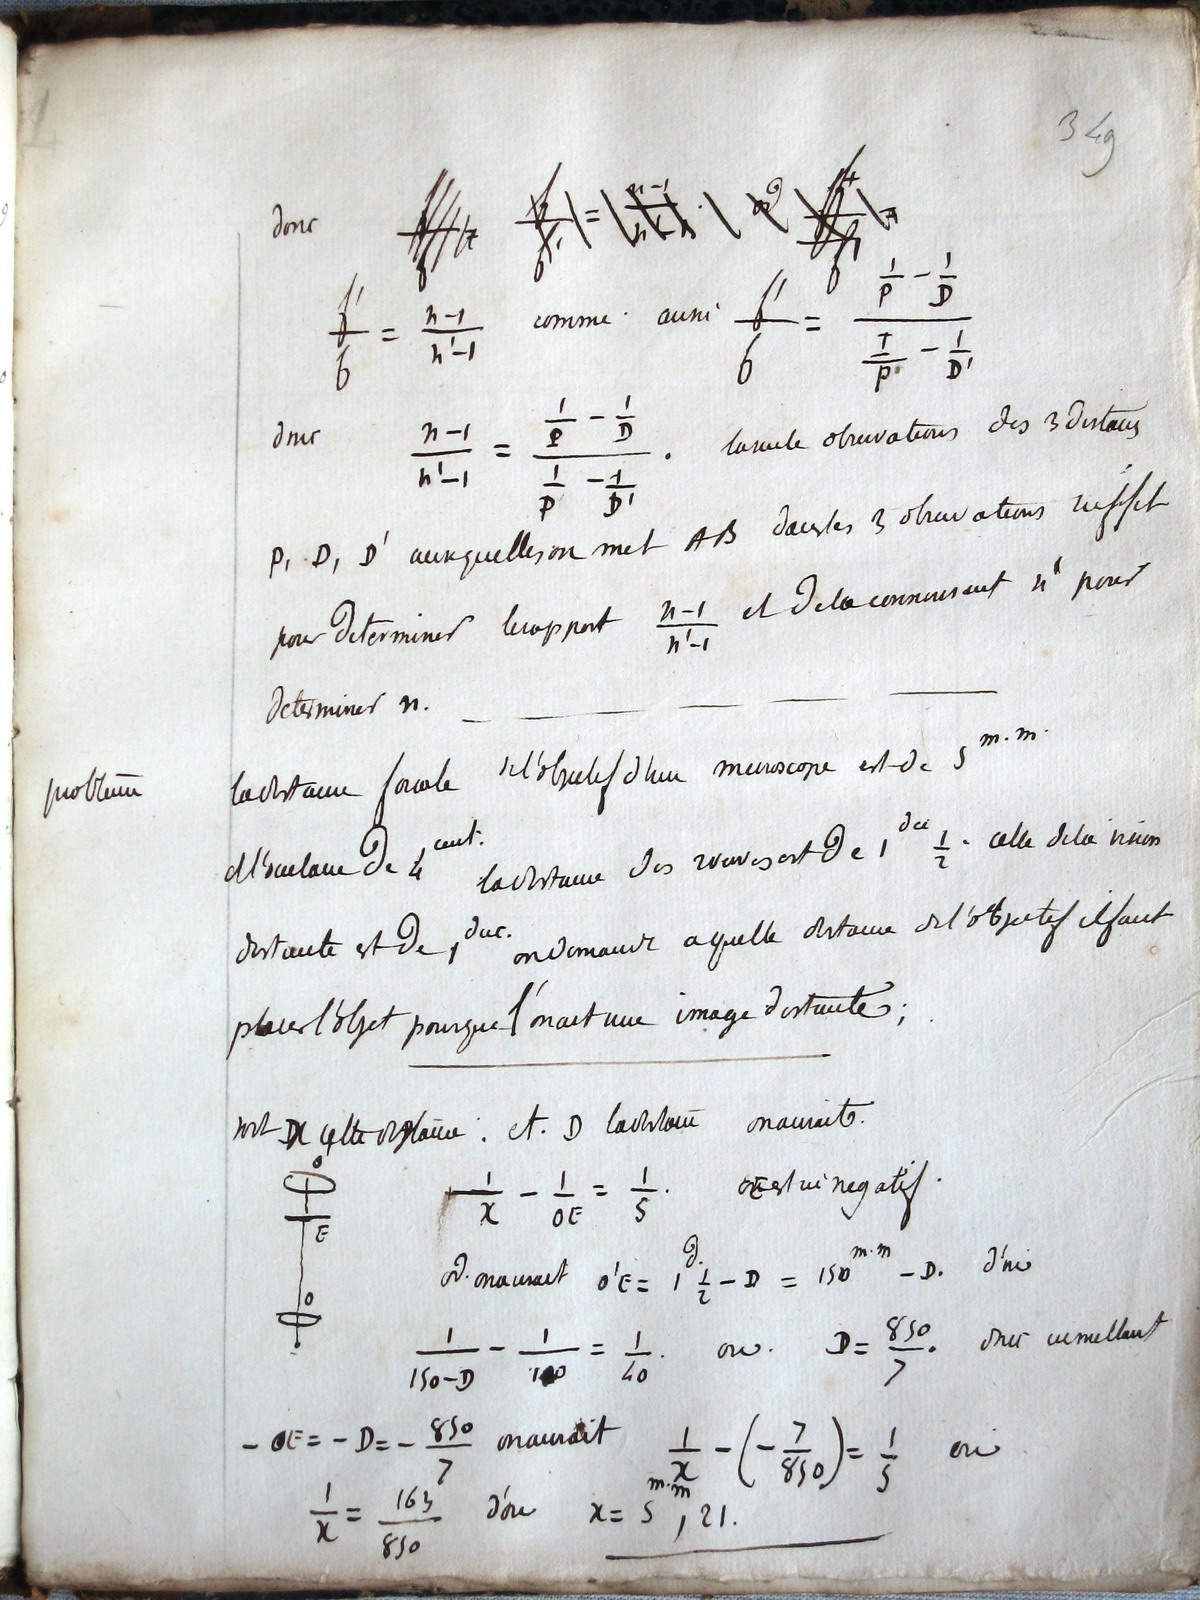 349
donc
f'/f = n-1/n'-1 comme aussi f'/f = (1/P - 1/D)/(1/P - 1/D')
donc n-1/n'-1 = (1/P - 1/D)/(1/P - 1/D') . la seule observations des 3 distances
P, D, D' auxquelles on met AB dans les 3 observations suffit
pour determiner le rapport n-1/n'-1 et dela connoissant n' pour
determiner n.
problème
la distance focale de l'objectif d'un microscope est de 5 m.m.
et l'oculaire de 4 cent. la distance des verres est de 1 dec 1/2. celle de la vision
distincte est de 1 dec. on demande a quelle distance de l'objectif il faut
placer l'objet pour que l'on ait une image distincte;
soit x cette distance. et. D la distance on aurait.
1/x - 1/OE = 1/5. OE est ici negatif.
or. on aurait O'E = 1 d. 1/2 - D = 150 m.m - D. d'où
1/150-D - 1/100 = 1/40. ou. D = 850/7. donc en mettant
- OE = - D = - 850/7 on aurait 1/x - (- 7/850) = 1/5 ou
1/x = 163/850 d'où x = 5 m.m, 21.
O
E
O